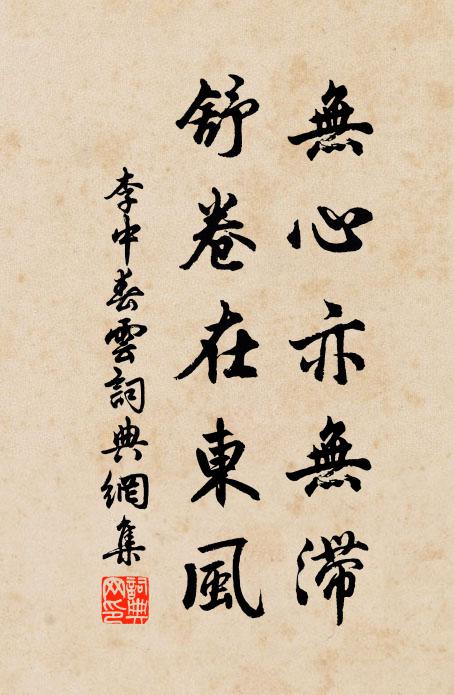 無心亦無滯
舒卷在東風
李中春雲詞典網集
詞典網印